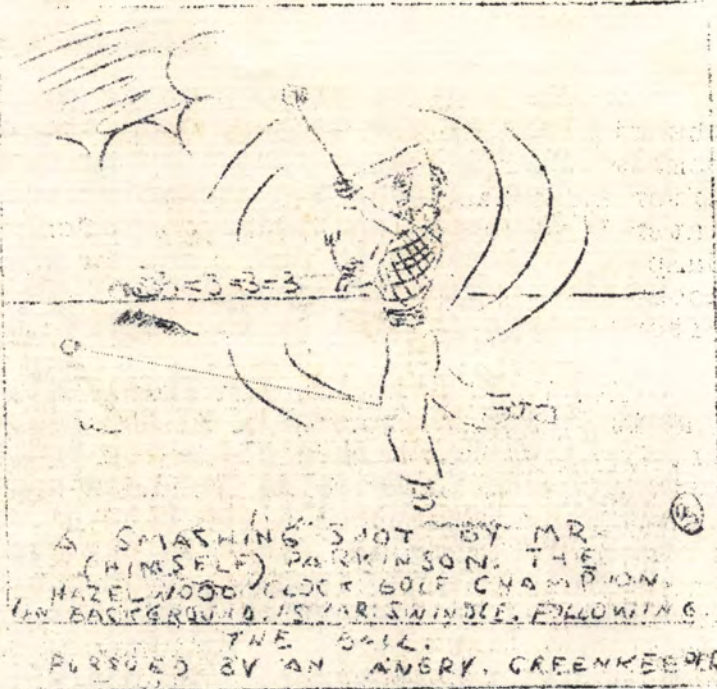 A SMASHING SHOT BY MR
(HIMSELF) PARKINSON. THE
HAZELWOOD CLOCK GOLF CHAMPION.
IN BACKGROUND IS MR SWINDLE. FOLLOWING
THE BALL.
PURSUED BY AN ANGRY. GREENKEEPER